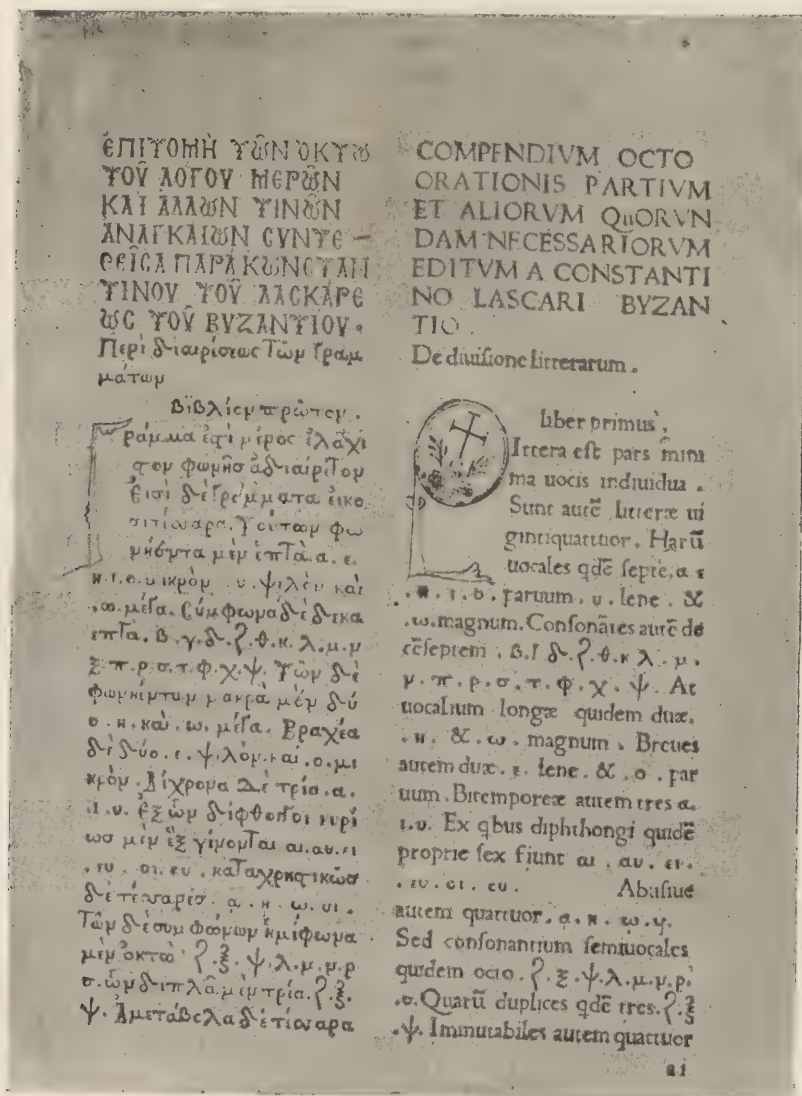 ἘΠΙΤΟΜῊ ΤῶΝ ὈΚΤὼ
ΤΟΥ͂ ΛΌΓΟΥ ΜΕΡῶΝ
ΚΑῚ ἌΛΛωΝ ΤΙΝῶΝ
ἈΝΑΓΚΑΊωΝ CΥΝΤΕ –
ΘΕΙ͂CΑ ΠΑΡᾺ ΚωΝCΤΑΝ
ΤΊΝΟΥ ΤΟΥ͂ ΛΑCΚΆΡΕ
ωC ΤΟΥ͂ ΒΥΖΑΝΤΊΟΥ.
Περὶ διαιρίσεως Τῶν Γραμ
μάτων
Βιβλίον πρῶτον.
ράμμα ἐστὶ μέρος ἐλάχι
στον φωνῆσ ἀδιαίρεΤον
Εἰσὶ δὲ Γράμματα εἰκο
σιτέσσαρα. Τούτων φω
νήεντα μὲν ἑπΤὰ. α. ε.
η. ι. ο. μικρὸν. υ. ψιλὸν καὶ
. ω. μέΓα. Σύμφωνα δὲ δεκα
επΤα. β. γ. δ. ζ. θ. κ. λ. μ. ν
ξ. π. ρ. σ. τ. φ. χ. ψ. Τῶν δὲ
φωνηέντων μακρὰ μὲν δύ
ο. η. καὶ. ω. μέΓα. Βραχέα
δὲ δύο. ε. ψιλὸν. καὶ. ο. μι
κρὸν. Δίχρονα Δὲ τρία. α.
. ι. υ. Ἐξ ὧν δίφθοΓΓοι κυρί
ωσ μὲν ἓξ γίνονΤαι αι. αυ. ει
. ευ. οι. ου. καΤαχρηστικῶσ
δὲ τέσσαρεσ. ᾳ. η. ω. υι.
Τῶν δὲ συμφώνων ἡμίφωνα
μὲν ὀκτὼ. ζ. ξ. ψ. λ. μ. ν. ρ
σ. ὧν διπλᾶ μὲν τρία. ζ. ξ.
ψ. Ἀμετάβολα δὲ τέσσαρα
COMPENDIVM OCTO
ORATIONIS PARTIVM
ET ALIORVM QuORVN
DAM NECESSARIORVM
EDITVM A CONSTANTI
NO LASCARI BYZAN
TIO.
De diuisione litterarum.
liber primus.
Ittera est pars mini
ma uocis indiuidua.
Sunt autē litteræ ui
gintiquattuor. Harū
uocales qdē septē. α ε
. η. ι. ο. paruum. υ. lene. &
. ω. magnum. Consonātes autē de
cēseptem. β. Γ δ. ζ. θ. κ λ. μ.
ν. π. ρ. σ. τ. φ. χ. ψ. At
uocalium longæ quidem duæ.
. η. &. ω. magnum. Breues
autem duæ. ε. lene. &. ο. par
uum. Bitemporeæ autem tres α.
ι. υ. Ex qbus diphthongi quidē
proprie sex fiunt αι. αυ. ει.
. ευ. οι. ευ. Abusiue
autem quattuor. ᾳ. η. ω. υι.
Sed consonantium semiuocales
quidem octo. ζ. ξ. ψ. λ. μ. ν. ρ.
. σ. Quarū duplices qdē tres. ζ. ξ
. ψ. Immutabiles autem quattuor
a1